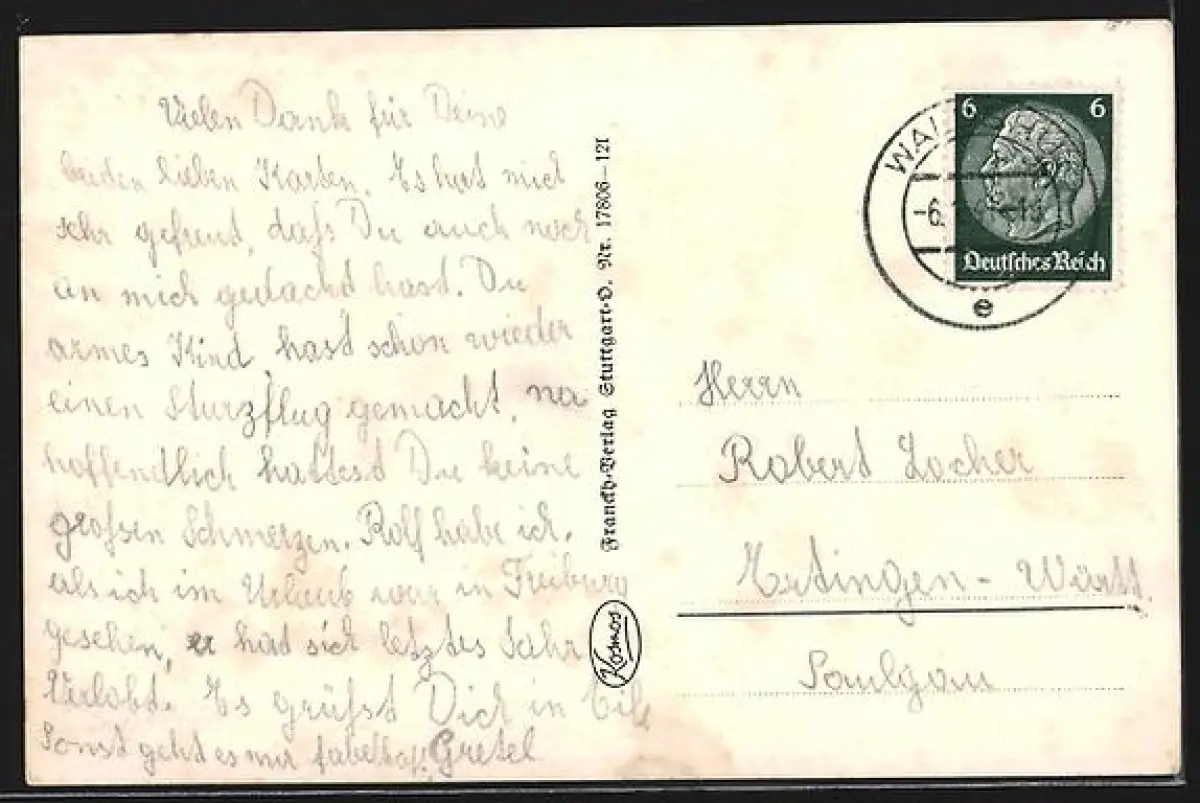 Vielen Dank für Deine
beiden lieben Karten. Es hat mich
sehr gefreut, daß Du auch noch
an mich gedacht hast. Du
armes Kind, hast schon wieder
einen Sturzflug gemacht, na
hoffendlich hattest Du keine
großen Schmerzen. Rolf habe ich,
als ich im Urlaub war in Freiburg
gesehen, er hat sich letztes Jahr
Verlobt. Es grüßt Dich in Eile
Sonst geht es mir fabelhaft. Gretel
Franckh-Verlag Stuttgart-O. Nr. 17806-121
Kosmos
6 6
Deutsches Reich
-6.
e
Herrn
Robert Locher
Ertingen - Württ.
Saulgau